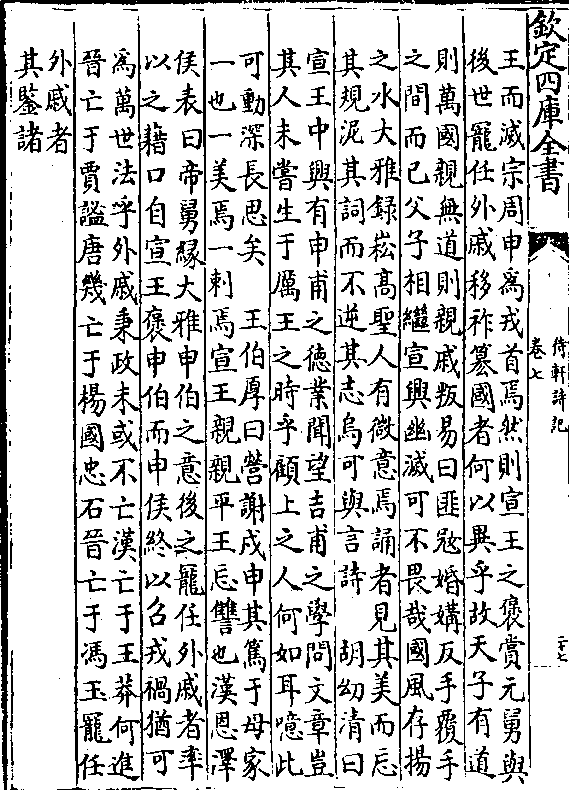 欽定四庫全書
待軒詩記
卷七
二十七
王而滅宗周申為戎首焉然則宣王之褒賞元舅與
後世寵任外戚移祚簒國者何以異乎故天子有道
則萬國親無道則親戚叛易曰匪宼婚媾反手覆手
之間而已父子相繼宣興幽滅可不畏哉國風存揚
之水大雅録崧髙聖人有微意焉誦者見其美而忘
其規泥其詞而不逆其志烏可與言詩　胡㓜清曰
宣王中興有申甫之徳業聞望吉甫之學問文章豈
其人未嘗生于厲王之時乎顧上之人何如耳噫此
可動深長思矣　王伯厚曰營謝戍申其篤于母家
一也一美焉一刺焉宣王親親平王忘讐也漢恩澤
侯表曰帝舅縁大雅申伯之意後之寵任外戚者率
以之藉口自宣王褒申伯而申侯終以召戎禍猶可
為萬世法乎外戚秉政未或不亡漢亡于王莽何進
晉亡于賈謐唐幾亡于楊國忠石晉亡于馮玉寵任
外戚者
其鑒諸